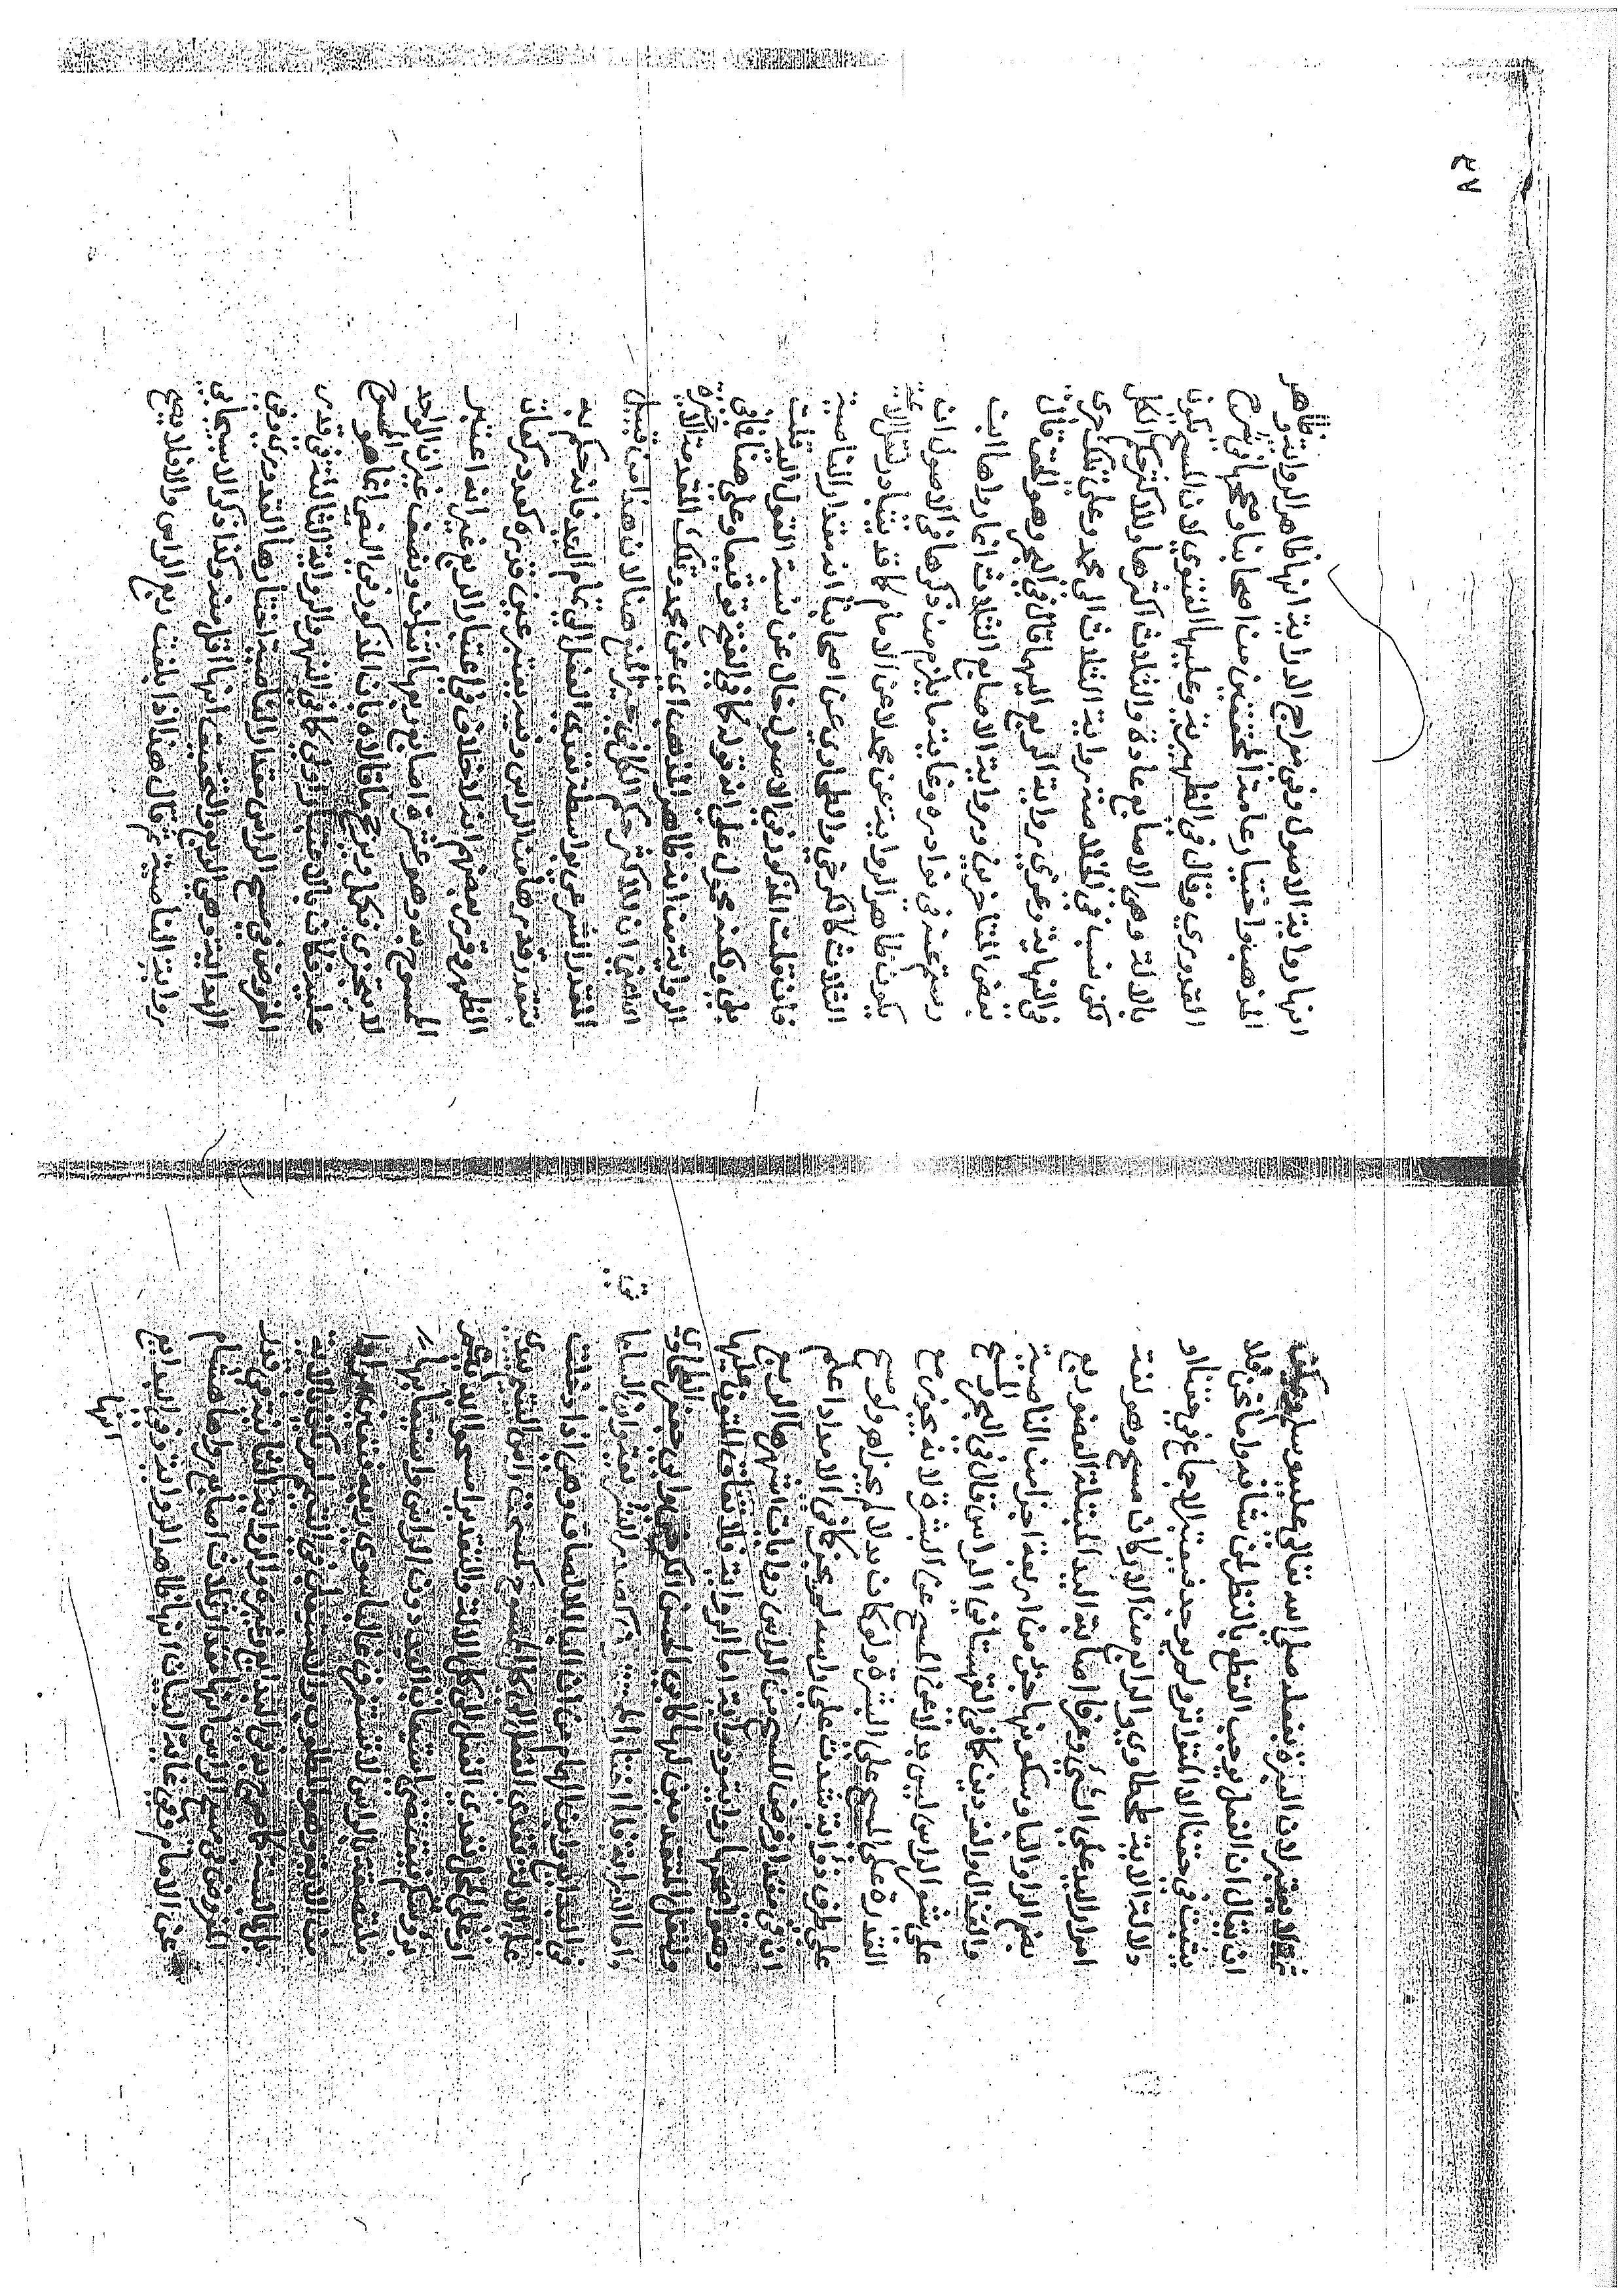 لا يعتبر لان العبرة بفعله صلى الله تعالى عليه وسلم ويمكن
ان يقال ان الفعل يوجب القطع بالنظر لمن شاهده واما نحن فلا
يثبت في حقنا الا بالتواتر ولم يوجد فيعتبر الاجماع في حقنا او
دلالة الاية طحطاوي والرابع من الاركان مسح وهو لغة
امرار اليد على الشيء وعرفا اصابة اليد المبتلة العضو ربع
بضم الراء والباء وسكونها جزء من اربعة اجزاء من الناصية
والقذال والفودين كما في القهستاني الراس قال في البحر ومسح
على شعر الراس ليس بدلا عن المسح على البشرة لانه يجوز مع
القدرة على المسح على البشرة ولو كان بدلا لم يجز اهـ ولو مسح
على طرف ذؤابة شدت على راسه لم يجز كما في الامداد اعلم
ان في مقدار فرض المسح من الراس روايات اشهرها الربع
وهو اصحها رواية ودراية اما الرواية فلاتفاق المتون عليها
ولنقل المتقدمين لها كابي الحسن الكرخي وابي جعفر الطحاوي
واما الدراية فلما اختار كصدر الشريعة وابن الساعاتي
في البديع وابن الهمام من ان الباء للالصاق وهي اذا دخلت
على الالة تعدى الفعل الى كل الممسوح كمسحت راس اليتيم بيدي
او على المحل تعدى الفعل الى الالة والتقدير امسحوا ايديكم
برؤسكم فيقتضي استيعاب اليد دون الراس واستيعابها
ملتصقة بالراس لا تستغرق غالبا سوى ربعه فتعين مرادا
من الاية وهو المطلوب والاستيعاب في التيمم لم يكن بالاية
بل بالسنة كما صرح به في البدائع وغيره والرواية الثانية هي قدر
المفروض في مسح الراس انها مقدار ثلاث اصابع رواها هشام
عن الامام وفي غاية البيان انها ظاهر الرواية وفي البدايع
انها
٨٦
انها رواية الاصول وفي معراج الدراية انها ظاهر الرواية وظاهر
المذهب واختيار عامة المحققين من اصحابنا وصححها في شرح
القدوري وقال في الظهيرية وعليها الفتوى لان المسح يكون
بالالة وهي الاصابع عادة والثلاث اكثرها وللاكثر حكم الكل
لكن نسبها في الخلاصة رواية الثلاث الى محمد وعلى تلك جرى
في النهاية وعزى رواية الربع اليهما قال في البحر وهو الحق قال
بعض المتاخرين ورواية الاصابع الثلاث انما رواها ابن
رستم عنه في نوادره وغاية ما يلزم من ذكرها في الاصول ان
يكون ظاهر الرواية عن محمد لا عن الامام كما قد يتبادر لنقل الائمة
الثلاث كالكرخي والطحاوي عن اصحابنا انه مقدار الناصية
فان قلت المذكور في الاصول خال عن نسبة القول اليه قلت
بلى ولكنه محمول على انه قوله كما في الفتح توفيقا وعلى هذا فما في
الرواية من انه ظاهر المذهب اي عن محمد وتلك المقدمة الاخيرة
اعني ان للاكثر حكم الكل في حيز المنع هنا لان هذا من قبيل
المقدر الشرعي بواسطة تعدي الفعل الى تمام اليد فانه حكم به
يتقدر قدرها من الراس وفيه يعتبر عين قدره كعدد ركعات
الظهر وقرر بعضهم انه لا خلاف في اعتبار الربع غير انه اعتبر
الممسوح به وهو عشرة اصابع ربعها اثنان ونصف غير ان الواحد
لا يتجزى فكمل ويرجح ما قالاه بان المذكور في النص انما هو الممسوح
عليه فكان بالاعتبار اولى كما في النهر والرواية الثالثة هي قدر
المفروض في مسح الراس مقدار الناصية اختارها القدوري وفي
الهداية وهي الربع والتحقيق انها اقل منه وكذا ذكر الاسبيجابي
رواية الناصية ثم قال هذا اذا بلغت ربع الراس والا فلا يصح